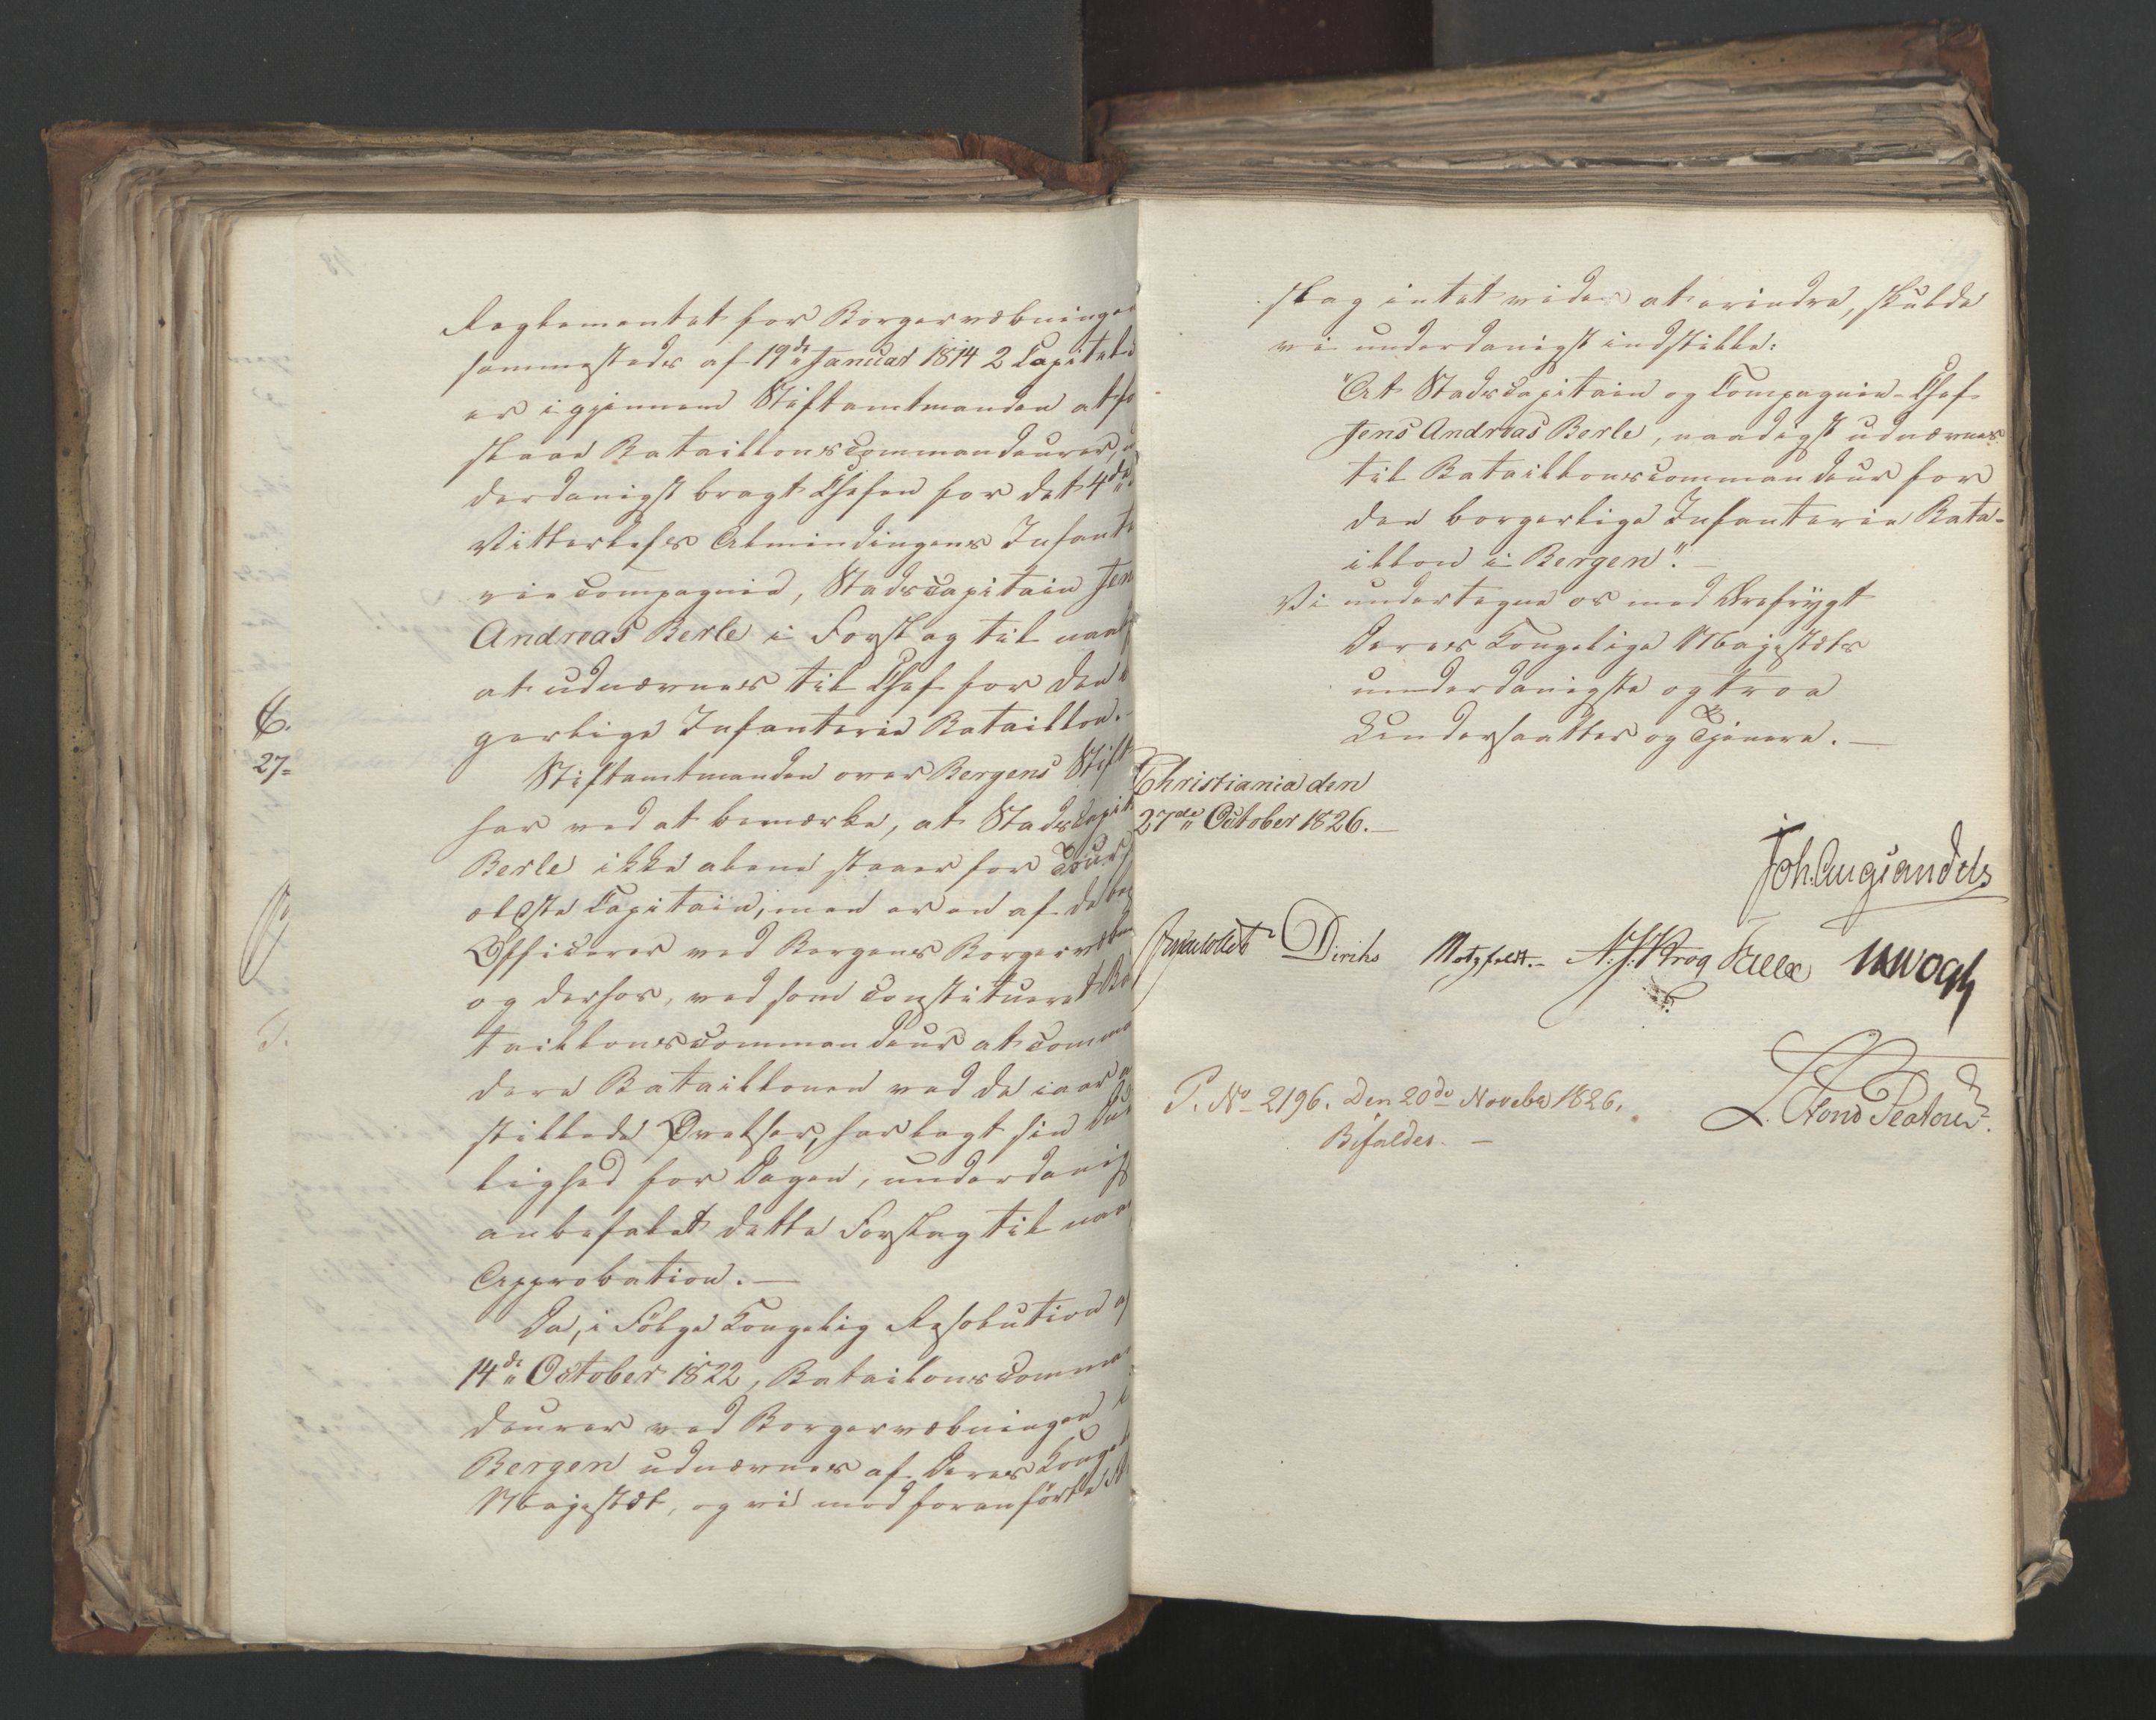 Reglementet for Borgervæbningen
sammesteds af 19de Januar 1814 2 Capitel
er igjennem Stiftamtmanden at fore
slaae Bataillonscommandeurer, un
derdanigst bragt Chefen for det 4de
Vitterlefs Almindingens Infante
rie Compagnie, Stadscapitain Jens
Andreas Berle i Forslag til naad
at udnævnes til Chef for den
gerlige Infanterie Bataillon.
Stiftamtmanden over Bergens Stift
har ved at bemærke, at Stadscapit
Berle ikke alene staaer for Tour
ældste Capitain, men er en af de
Officerer ved Bergens Borgervæbn
og derhos, ved som constitueret Ba
taillonscommandeur at comman
dere Bataillonen ved de iaar
stillede Øvelser, har lagt sin Due
lighed for Dagen, underdanigst
anbefalet dette Forslag til naa
Approbation.—
Da, i Følge Kongelig Resolution af
14de October 1822, Bataillonscomman
deurer ved Borgervæbningen i
Bergen udnævnes af Deres Kongel
Majestæt, og vi mod foranførte For
C.
27=
slag intet videre at erindre, skulde
vi underdanigst indstille:
"At Stadscapitain og Compagnie-Chef
Jens Andreas Berle, naadigst udnævnes
til Bataillonscommandeur for
den borgerlige Infanterie Bata-
illon i Bergen".—
Vi undertegne os med Ærefrygt
Deres Kongelige Majestæts
underdanigste og troe
Undersaatter og Tjenere.—
Christiania den
27de October 1826.—
Joh. Aug Sandels
Diriks Motzfeldt.- N. J. Krog Falle
L. Stond Platou
P. No 2196. Den 20de Novebr 1826.
Bifaldes.—